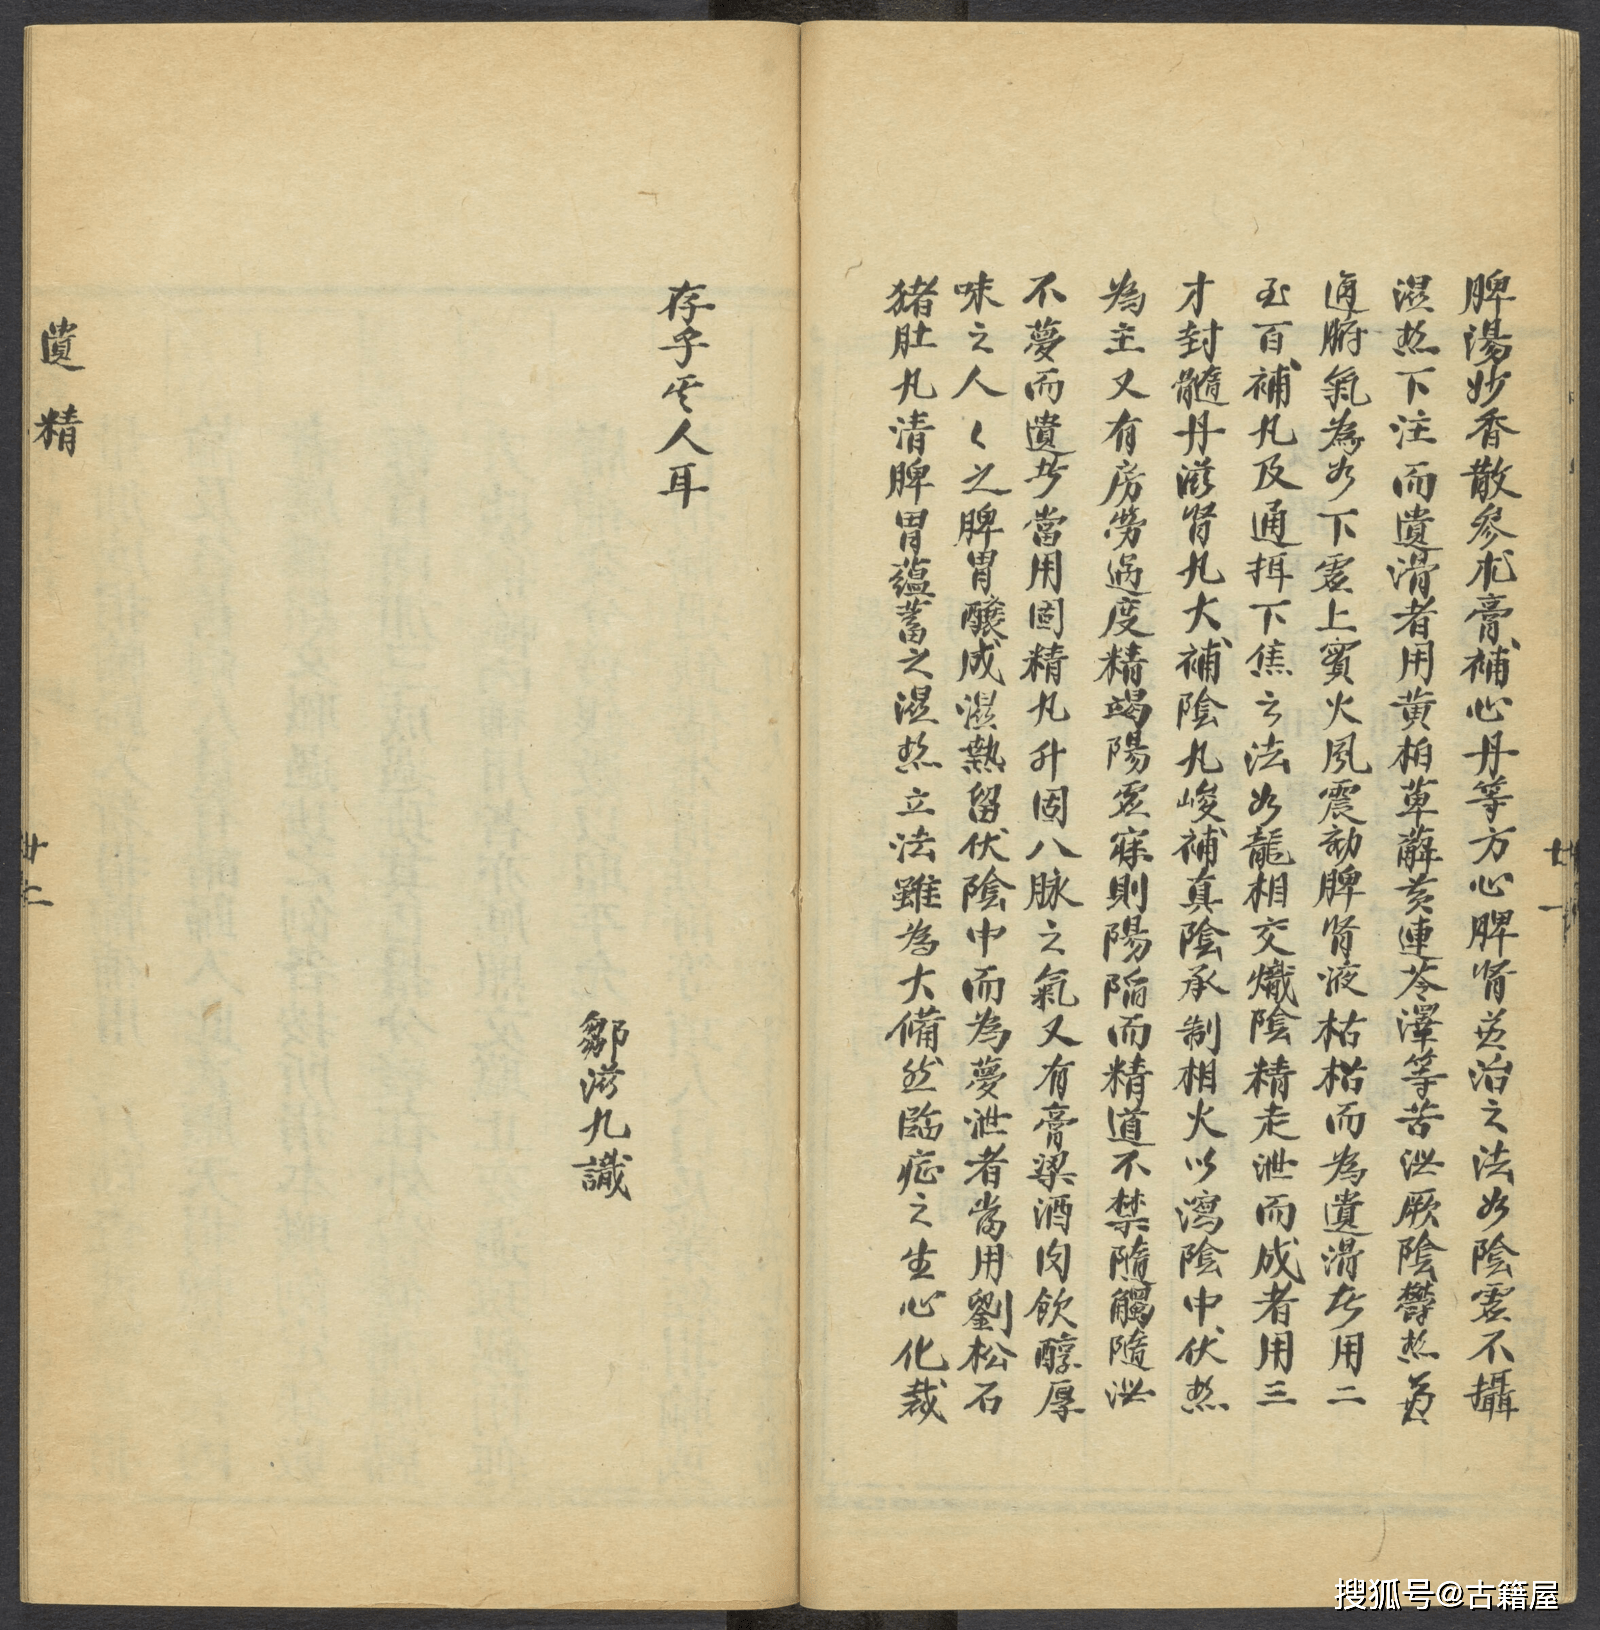 脾湯妙香散參朮膏補心丹等方心脾腎兼治之法如陰虛不攝
濕热下注而遺滑者用黃柏萆薢黃連苓澤等苦泄厥陰鬱热兼
通腑氣為如下虛上實火風震動脾腎液枯枯而為遺滑者用二
至百補丸及通挕下焦之法如龍相交熾陰精走泄而成者用三
才封髓丹滋腎丸大補陰丸峻補真陰承制相火以瀉陰中伏热
為主又有房勞過度精竭陽虛寐則陽陷而精道不禁隨觸隨泌
不夢而遺者當用固精丸升固八脉之氣又有膏粱酒肉飲醇厚
味之人〻之脾胃釀成濕熱留伏陰中而為夢泄者當用劉松石
豬肚丸清脾胃蘊蓄之濕热立法雖為大備然臨症之生心化裁
存乎其人耳
鄒滋九識
遺精
廿一
廿二
搜狐号@古籍屋